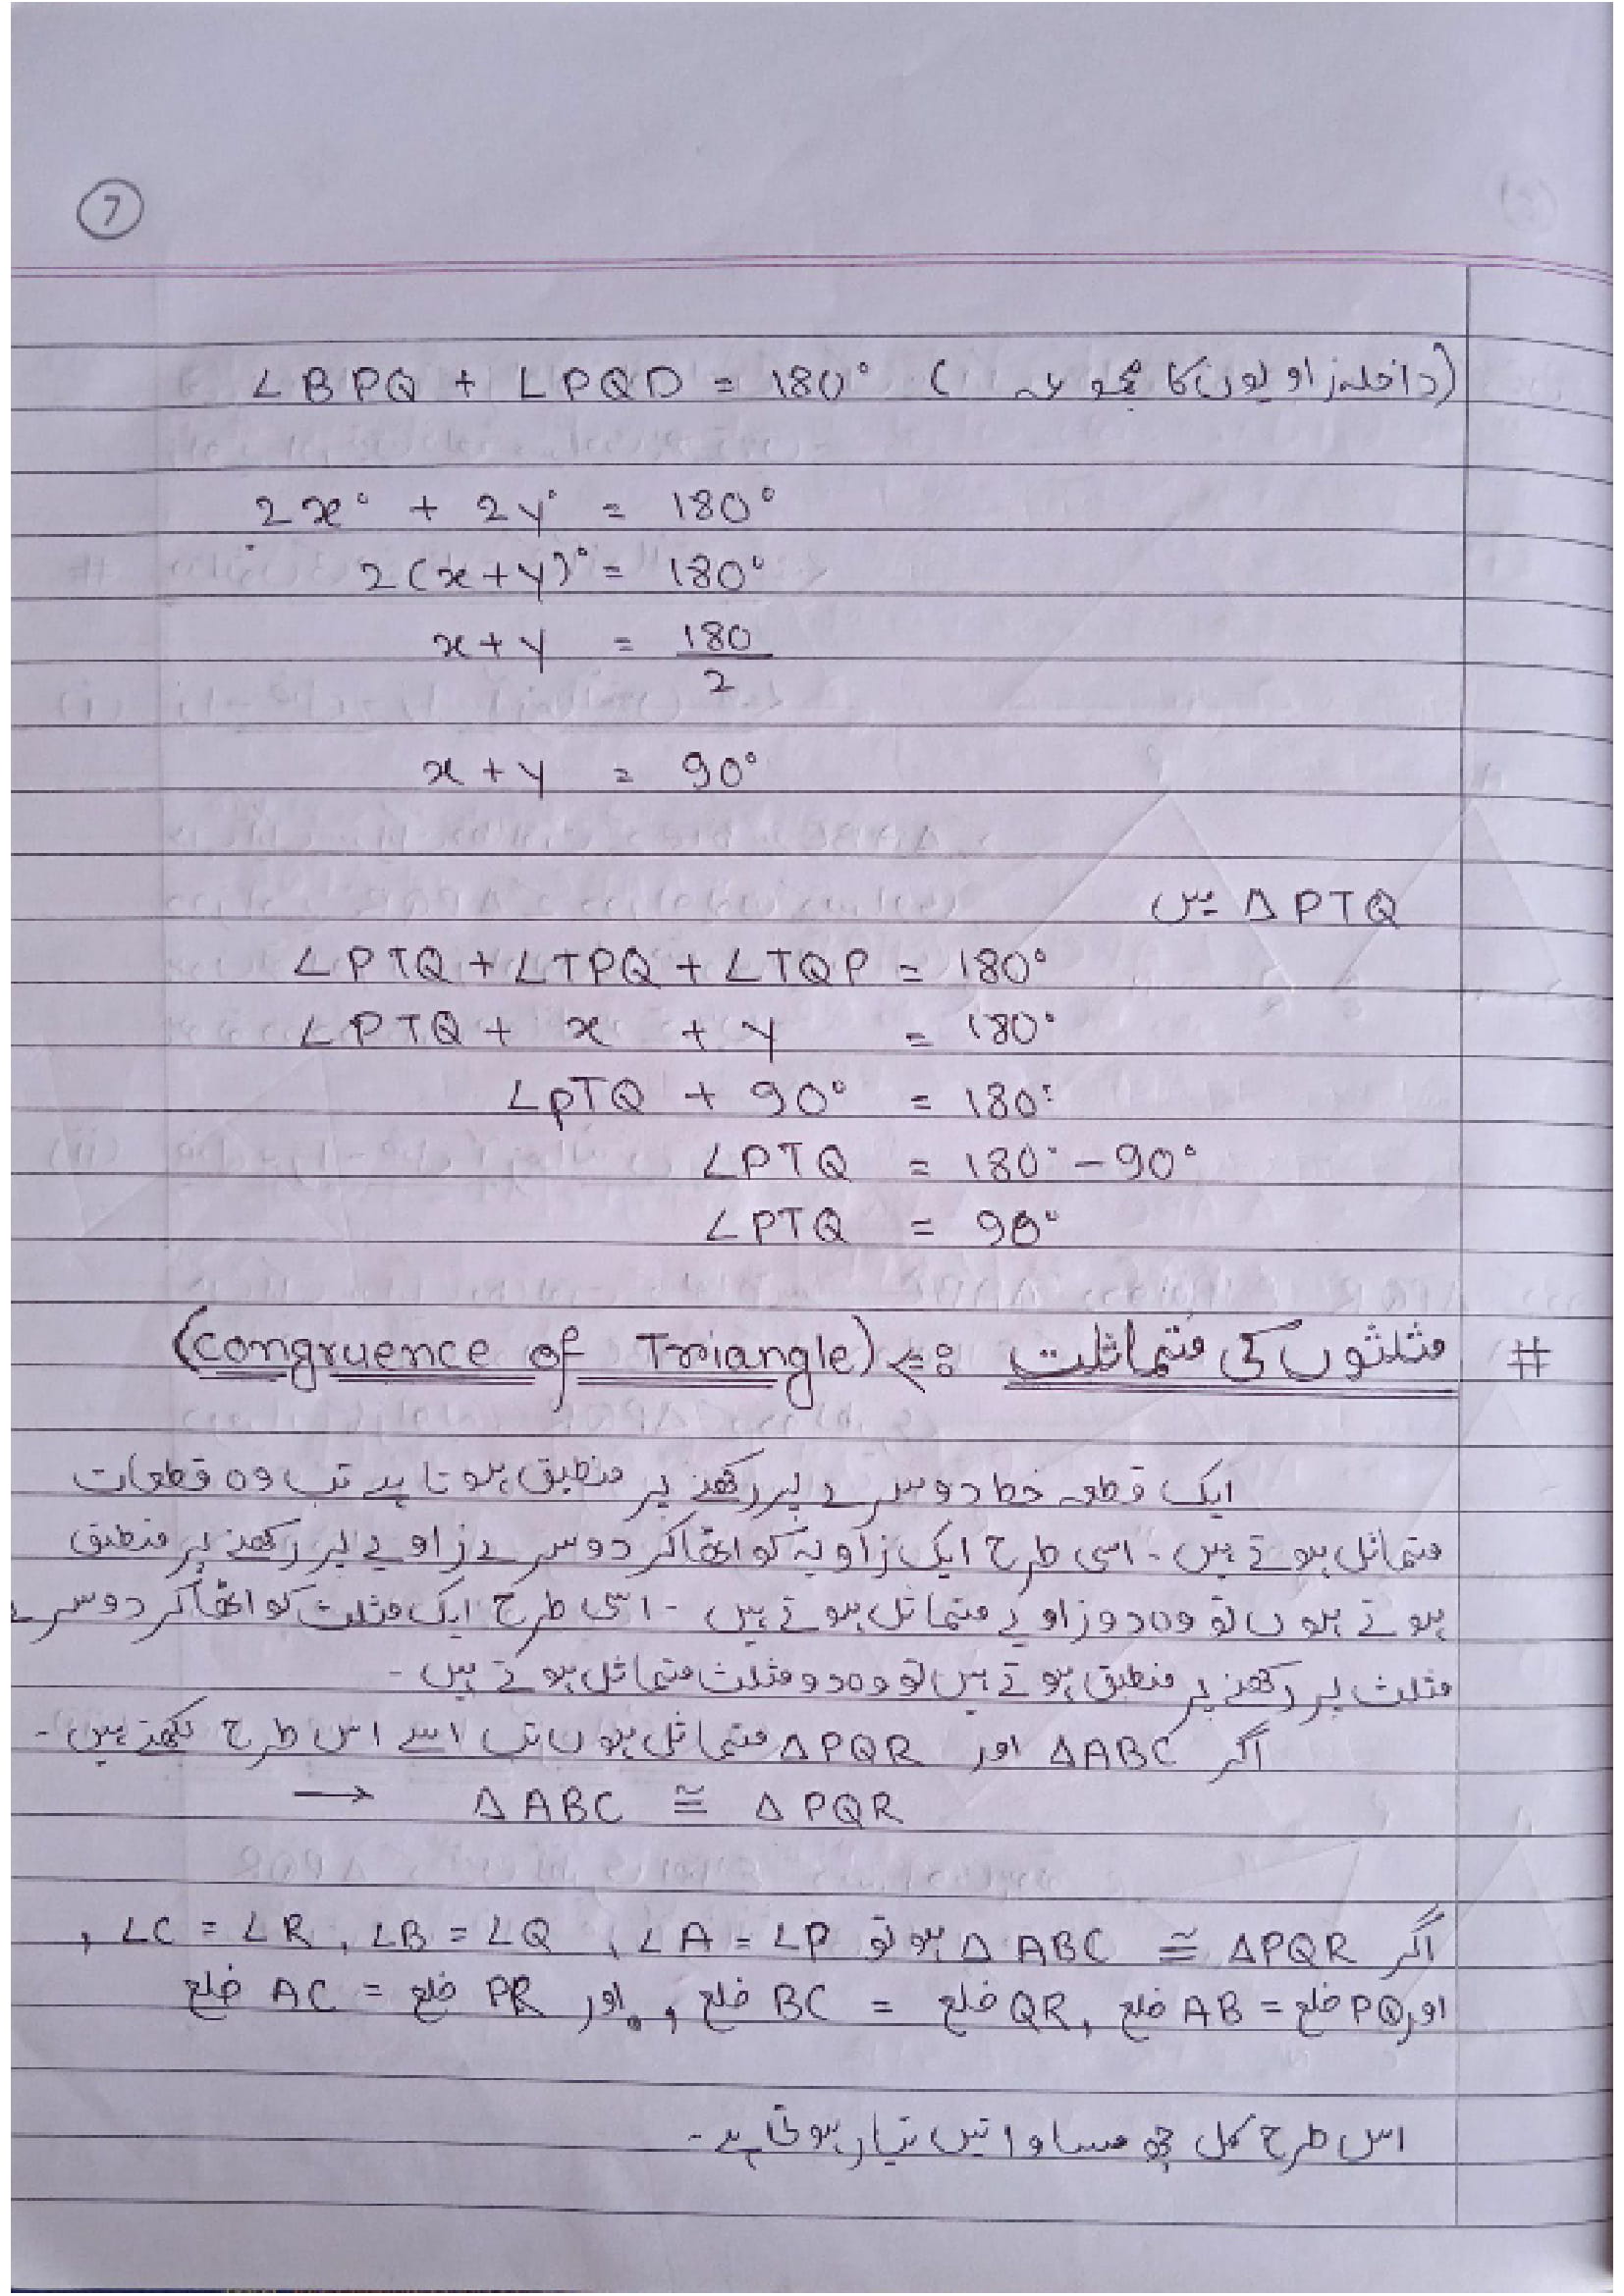 7
∠BPQ + ∠PQD = 180° (داخلہ زاویوں کا مجموعہ)
2x° + 2y° = 180°
2(x+y)° = 180°
x+y = 180/2
x+y = 90°
△PTQ میں
∠PTQ + ∠TPQ + ∠TQP = 180°
∠PTQ + x + y = 180°
∠PTQ + 90° = 180°
∠PTQ = 180° - 90°
∠PTQ = 90°
# مثلثوں کی متماثلت :⇒ (Congruence of Triangle)
ایک قطعہ خط دوسرے پر رکھنے پر منطبق ہوتا ہے تب وہ قطعات
متماثل ہوتے ہیں - اسی طرح ایک زاویہ کو اٹھاکر دوسرے زاویے پر رکھنے پر منطبق
ہوتے ہوں تو وہ دو زاویے متماثل ہوتے ہیں - اسی طرح ایک مثلث کو اٹھاکر دوسرے
مثلث پر رکھنے پر منطبق ہوتے ہیں تو وہ دو مثلث متماثل ہوتے ہیں -
اگر △ABC اور △PQR متماثل ہوں تب اسے اس طرح لکھتے ہیں -
→ △ABC ≅ △PQR
اگر △ABC ≅ △PQR ہو تو ∠A = ∠P , ∠B = ∠Q , ∠C = ∠R ,
اور ضلع PQ = ضلع AB , ضلع QR = ضلع BC , اور ضلع PR = ضلع AC
اس طرح کل چھ مساواتیں تیار ہوتی ہے -